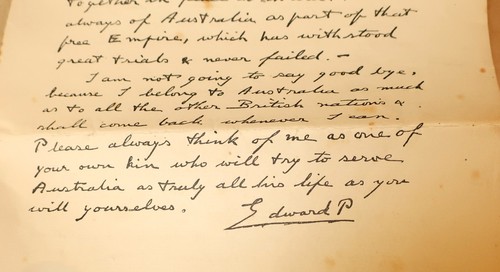 together in
always of Australia as part of that
free Empire, which has withstood
great trials & never failed. -
I am not going to say good bye,
because I belong to Australia as much
as to all the other British nations &
shall come back whenever I can.
Please always think of me as one of
your own kin who will try to serve
Australia as truly all his life as you
will yourselves.
Edward P